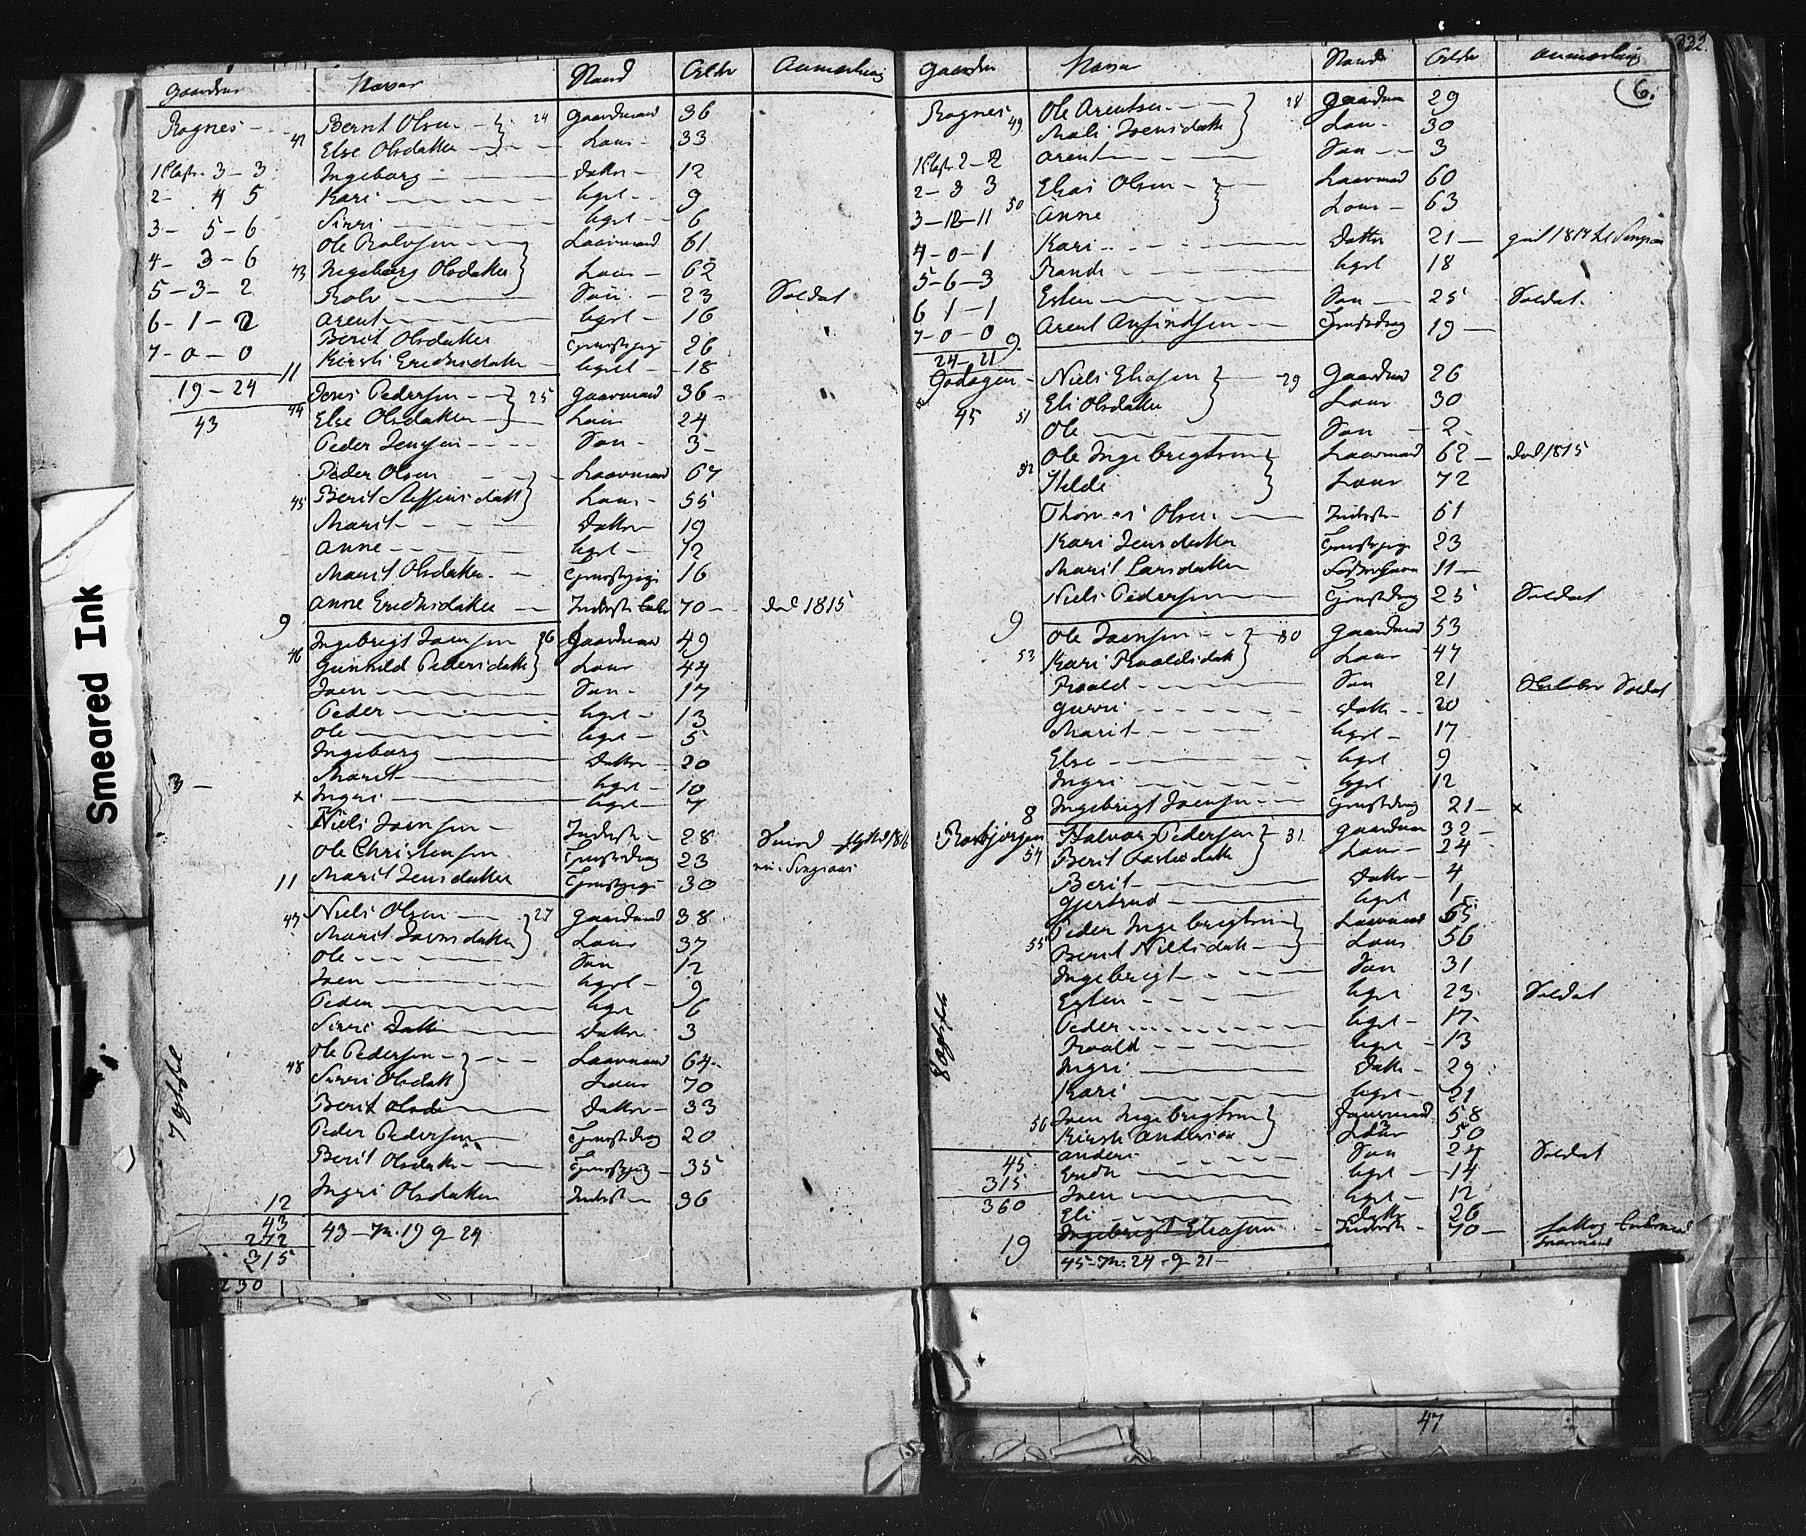 Smeared Ink
Gaardene Navne Stand Alder Anmerkning
Rognes 42 Bernt Olsen 24 Gaardmand 36
Else Olsdatter Kone 33
1 Clafs. 3 - 3 Ingeborg Datter 12
2 - 4 5 Kari ligel 9
3 - 5 - 6 Sirri ligel 6
4 - 3 - 6 Ole Rolvsen Laavmand 61
43 Ingeborg Olsdatter Kone 62
5 - 3 - 2 Rolv Søn 23 Soldat
6 - 1 - 2 Arent ligel 16
7 - 0 - 0 Berit Olsdatter Tjenestepige 26
11 Kirsti Erichsdatter ligel 18
19 - 24 44 Jens Pedersen 25 Gaardmand 36
43 Else Olsdatter Kone 24
Peder Jensen Søn 3
Peder Olsen Laavmand 67
45 Berit Steffensdatt Kone 55
Marit Datter 19
Anne ligel 12
Marit Olsdatter Tjenestepige 16
9 Anne Erichsdatter Inderst 70 Død 1815
46 Ingebrigt Joensen 26 Gaardmand 49
Gunnild Pedersdatt Kone 44
Joen Søn 17
Peder ligel 13
Ole ligel 5
Ingeborg Datter 20
3 - Marit ligel 10
x Ingri ligel 7
Niels Joensen Inderst 28 Smed flytted 1816
Ole Christensen Tjenestedreng 23 Singsaas
11 Marit Jensdatter Tjenestepige 30
47 Niels Olsen 27 Gaardmand 38
Marit Joensdatter Kone 37
Ole Søn 12
Joen ligel 9
Peder ligel 6
Sirri Datter 3
Ole Pedersen Laavmand 64
48 Sirri Olsdatt Kone 70
Berit Olsd Datter 33
Peder Pedersen Tjenestedreng 20
Berit Olsdatt Tjenestepige 35
12 Ingri Olsdatter Inderst 36
43
272
315
43 - M. 19 Q 24
230
132
6.
Gaardene Navne Stand Alder Anmerkning
Rognes 49 Ole Arentsen 28 Gaardmand 29
Mali Joensdatt Kone 30
1 Clafs. 2 - 2 Arent Søn 3
2 - 3 3 Elias Olsen Laavmand 60
3 - 12 - 11 50 Anne Kone 63
4 - 0 - 1 Kari Datter 21 1817 til Singsaas
5 - 6 - 3 Rande ligel 18
6 1 - 1 Esten Søn 25 Soldat
7 - 0 - 0 9 Arent Arfindsen Tjenestedreng 19
24 - 21
Niels Eliasen 29 Gaardmand 26
45 51 Eli Olsdatter Kone 30
Ole Søn 2
52 Ole Ingebrigtsen Laavmand 62 Død 1815
Hilde Kone 72
Thomas Olsen Inderst 61
Kari Jensdatter Tjenestepige 23
Marit Larsdatter 11
9 Niels Pedersen Tjenestedreng 25 Soldat
53 Ole Joensen 30 Gaardmand 53
Kari Roaldsdatt Kone 47
Roald Søn 21 Soldat
Gurri Datter 20
Marit ligel 17
Else ligel 9
Ingri ligel 12
8 Ingebrigt Joensen Tjenestedreng 21 x
Rosbjørgen 54 Halvor Pedersen 31 Gaardmand 32
Berit Datter Kone 24
Berit Datter 4
Gjertrud ligel 1
Peder Ingebrigtsen Laavmand 65
55 Berit Nielsdatt Kone 56
Ingebrigt Søn 31
Esten ligel 23 Soldat
Peder ligel 17
Roald ligel 13
Ingri Datter 29
Kari ligel 21
56 Joen Ingebrigtsen 58
Kirsti Andersdatter Kone 50
Anders Søn 24 Soldat
45 Erich ligel 14
315 Joen ligel 12
360 Eli Datter 26
19 Ingebrigt Eliasen Inderst 70
45 - M. 24 - Q 21
47